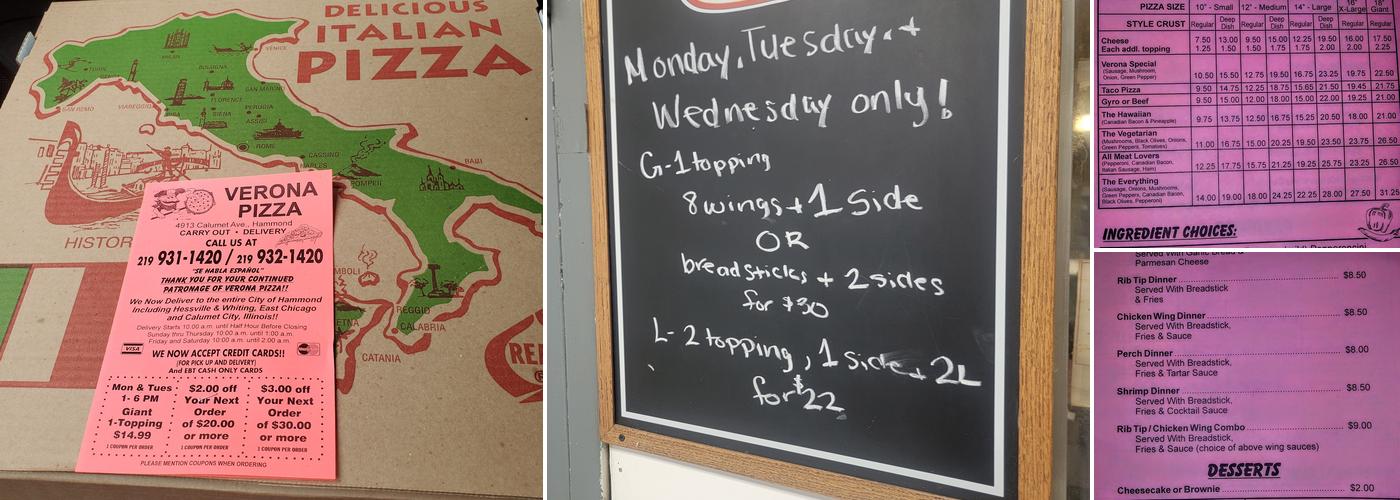 DELICIOUS
ITALIAN
PIZZA
VENICE
MILAN
TURIN
BOLOGNA
SAN MARINO
FLORENCE
SAN REMO
VIAREGGIO
PISA
SIENA
PERUGIA
ASSISI
ROME
CASSINO
NAPLES
BARI
POMPEII
HISTOR
REGGIO
CALABRIA
CATANIA
VERONA
PIZZA
4913 Calumet Ave., Hammond
CARRY OUT • DELIVERY
CALL US AT
219 931-1420 / 219 932-1420
"SE HABLA ESPAÑOL"
THANK YOU FOR YOUR CONTINUED
PATRONAGE OF VERONA PIZZA!!
We Now Deliver to the entire City of Hammond
Including Hessville & Whiting, East Chicago
and Calumet City, Illinois!!
Delivery Starts 10:00 a.m. until Half Hour Before Closing
Sunday thru Thursday 10:00 a.m. until 1:00 a.m.
Friday and Saturday 10:00 a.m. until 2:00 a.m.
VISA
WE NOW ACCEPT CREDIT CARDS!!
(FOR PICK UP AND DELIVERY)
And EBT CASH ONLY CARDS
Mon & Tues
1- 6 PM
Giant
1-Topping
$14.99
1 COUPON PER ORDER
$2.00 off
Your Next
Order
of $20.00
or more
1 COUPON PER ORDER
$3.00 off
Your Next
Order
of $30.00
or more
1 COUPON PER ORDER
PLEASE MENTION COUPONS WHEN ORDERING
Monday, Tuesday, +
Wednesday only!
G-1 topping
8 wings + 1 Side
OR
breadsticks + 2 sides
for $30
L- 2 topping, 1 side + 2L
for $22
PIZZA SIZE 10" - Small 12" - Medium 14" - Large 16" X-Large 18" Giant
STYLE CRUST Regular Deep Dish Regular Deep Dish Regular Deep Dish Regular Regular
Cheese 7.50 13.00 9.50 15.00 12.25 19.50 16.00 17.50
Each addl. topping 1.25 1.50 1.50 1.75 1.75 2.00 2.00 2.25
Verona Special
(Sausage, Mushroom,
Onion, Green Pepper) 10.50 15.50 12.75 19.50 16.75 23.25 19.75 22.50
Taco Pizza 9.50 14.75 12.25 18.75 15.65 21.50 19.45 21.75
Gyro or Beef 9.50 15.00 12.00 18.00 15.00 22.00 19.25 21.00
The Hawaiian
(Canadian Bacon & Pineapple) 9.75 13.75 12.50 16.75 15.25 20.50 18.00 21.00
The Vegetarian
(Mushrooms, Black Olives, Onions,
Green Peppers, Tomatoes) 11.00 16.75 15.00 20.25 19.50 23.50 23.75 26.50
All Meat Lovers
(Pepperoni, Canadian Bacon,
Italian Sausage, Ham) 12.25 17.75 15.75 21.25 19.25 25.75 23.25 26.50
The Everything
(Sausage, Onions, Mushrooms,
Green Peppers, Canadian Bacon,
Black Olives, Pepperoni) 14.00 19.00 18.00 24.25 22.25 28.00 27.50 31.25
INGREDIENT CHOICES:
Parmesan Cheese
Rib Tip Dinner $8.50
Served With Breadstick
& Fries
Chicken Wing Dinner $8.50
Served With Breadstick,
Fries & Sauce
Perch Dinner $8.00
Served With Breadstick,
Fries & Tartar Sauce
Shrimp Dinner $8.50
Served With Breadstick,
Fries & Cocktail Sauce
Rib Tip / Chicken Wing Combo $9.00
Served With Breadstick,
Fries & Sauce (choice of above wing sauces)
DESSERTS
Cheesecake or Brownie $2.00